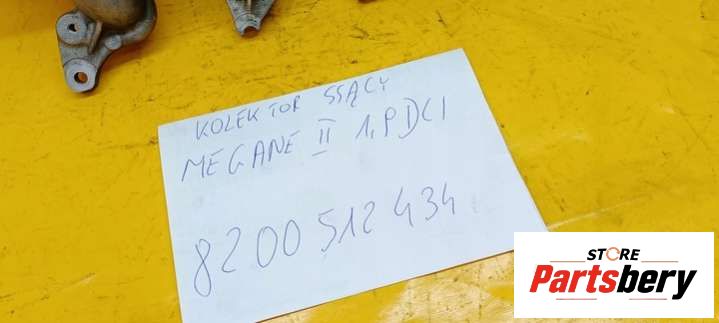 KOLEKTOR SSĄCY
MEGANE II 1,9 DCI
8200 512 434
STORE
Partsbery